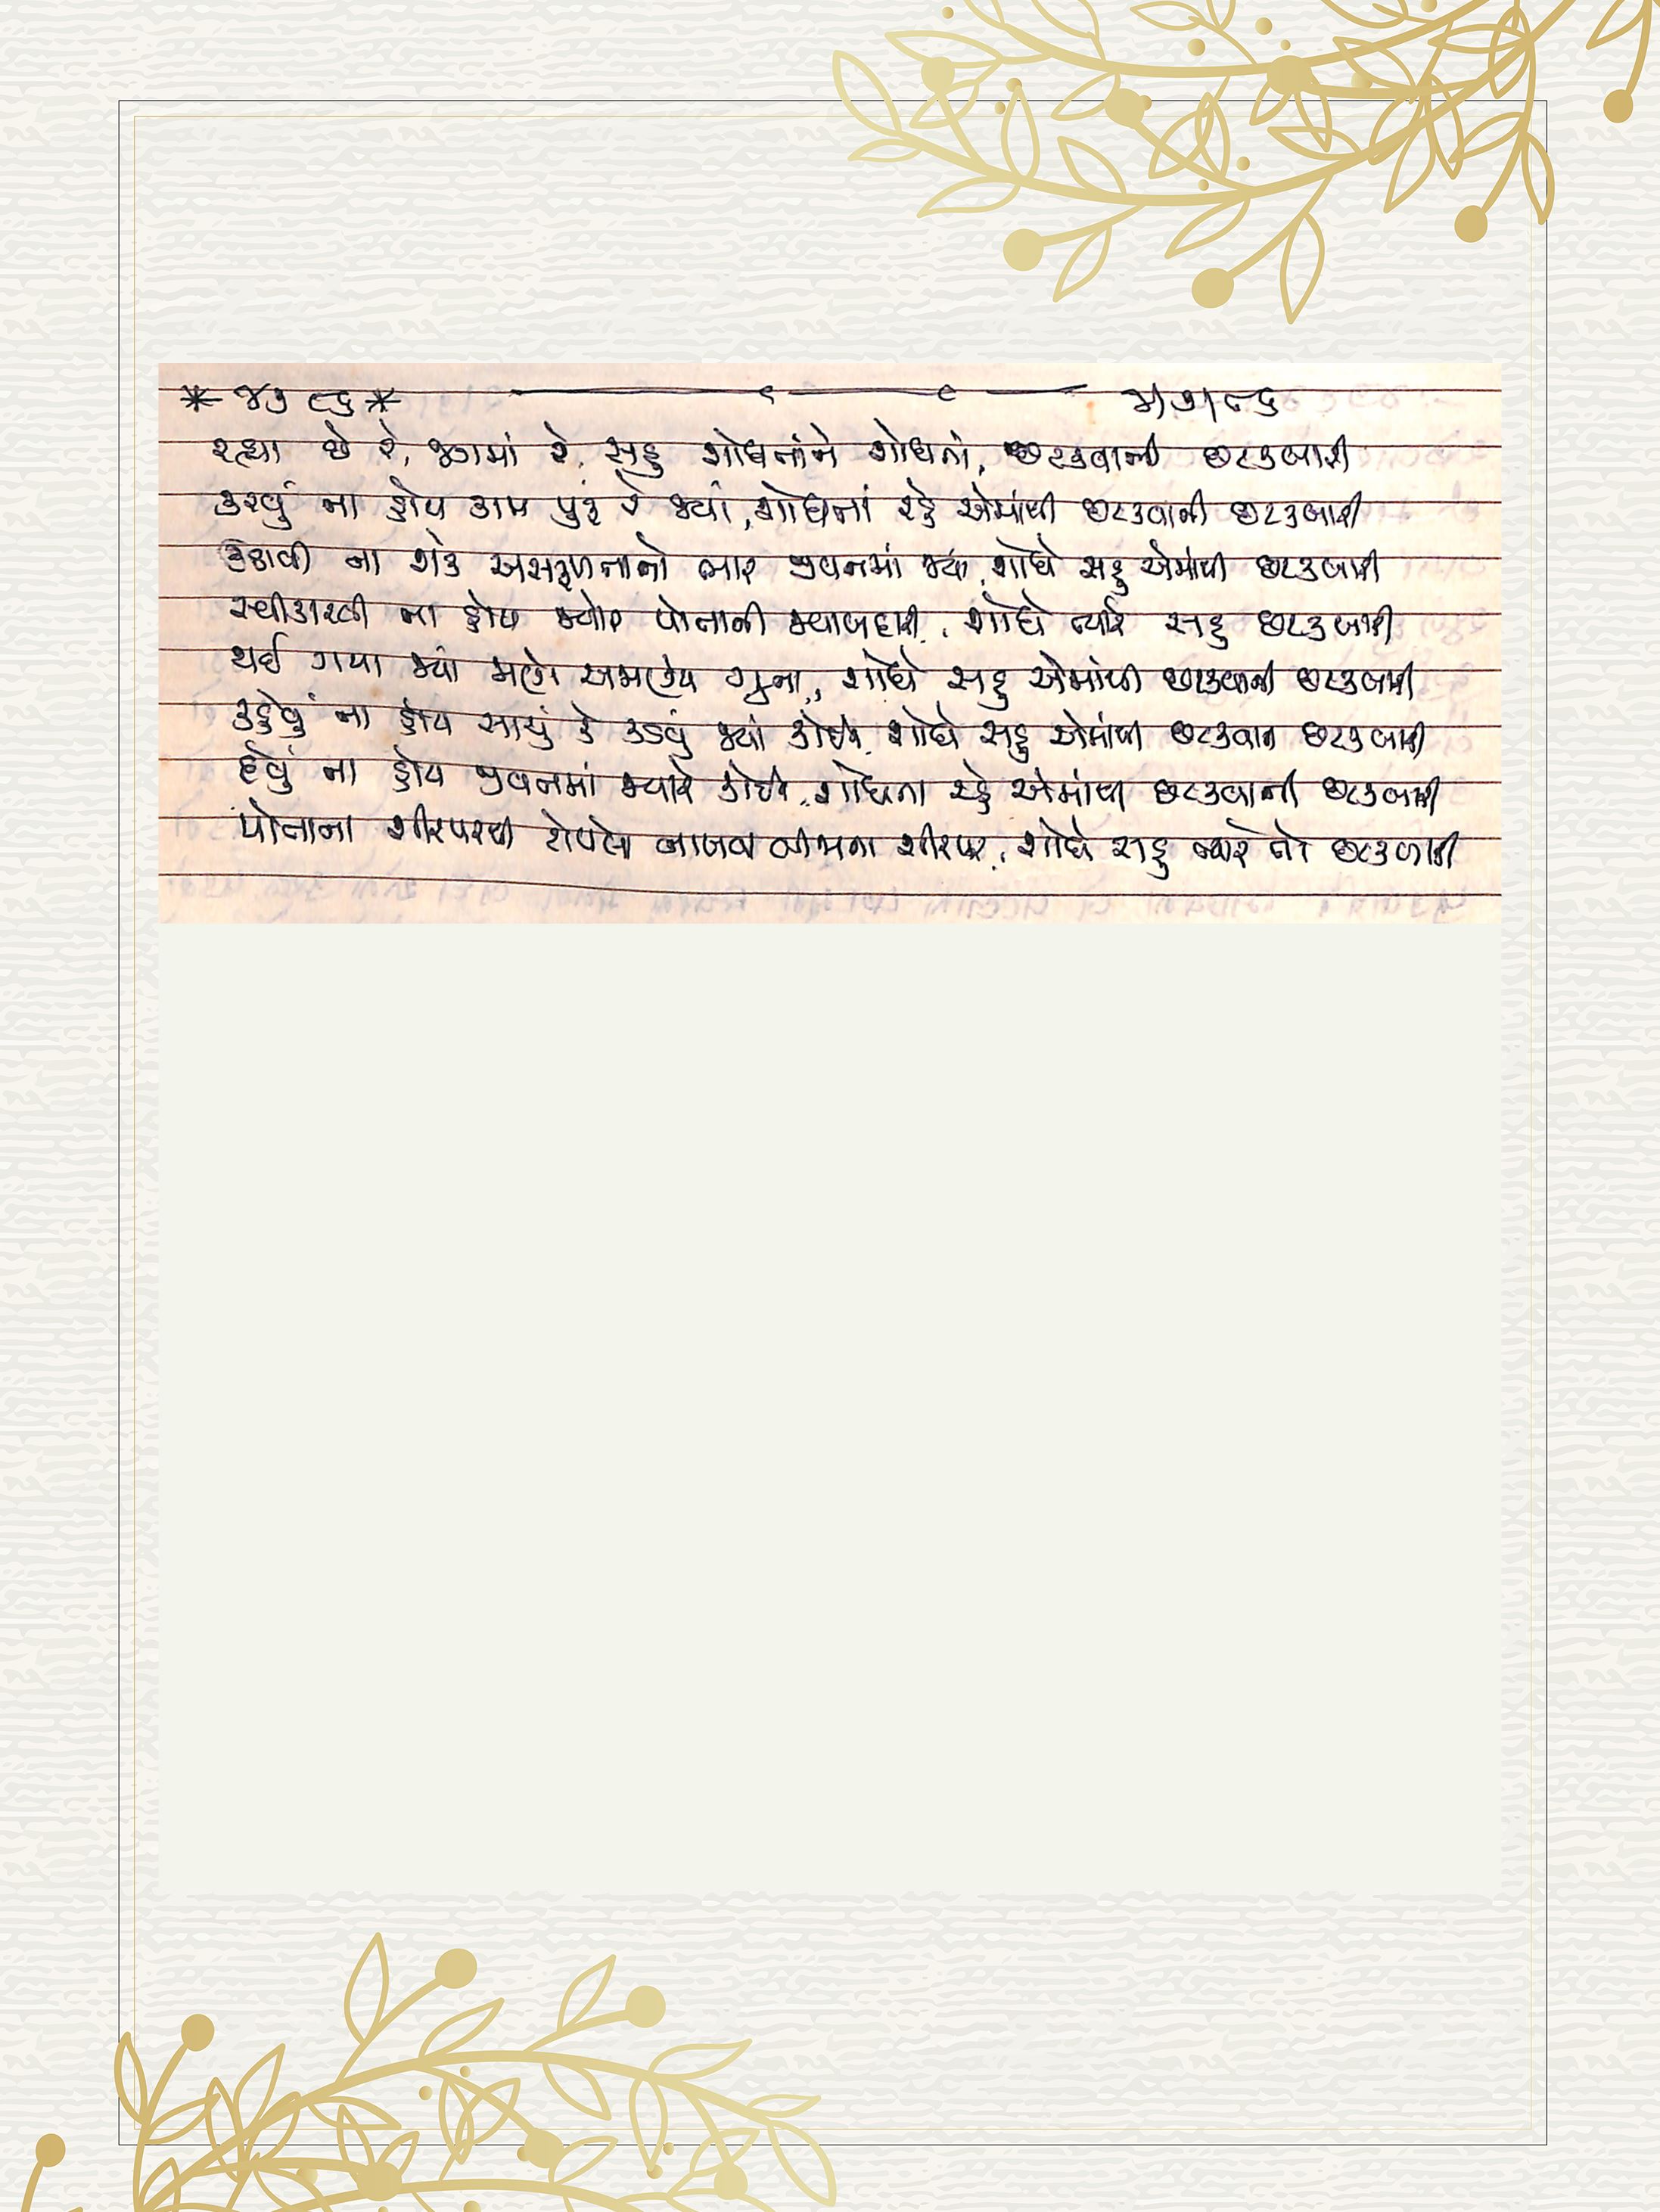 રહ્યા છે રે, જગમાં રે, સહુ શોધતાંને શોધતાં, છટકવાની છટકબારી
કરવું ના હોય કામ પુરું રે જ્યાં, શોધતાં રહે એમાંથી છટકવાની છટકબારી
ઉઠાવી ના શકે અસફળતાનો ભાર જીવનમાં જ્યાં, શોધે સહુ એમાંથી છટકબારી
સ્વીકારવી ના હોય જ્યારે પોતાની જવાબદારી, શોધે ત્યારે સહુ છટકબારી
થઈ ગયા જ્યાં મળે અમળે ગુના, શોધે સહુ એમાંથી છટકવાની છટકબારી
કહેવું ના હોય સાચું કે કડવું જ્યાં કોઈને, શોધે સહુ એમાંથી છટકવાની છટકબારી
દેવું ના હોય જીવનમાં જ્યારે કોઈને, શોધતા રહે એમાંથી છટકવાની છટકબારી
પોતાના શીરપરથી દોષનો નાખવા બીજાના શીરપર, શોધે સહુ ત્યારે તો છટકબારી